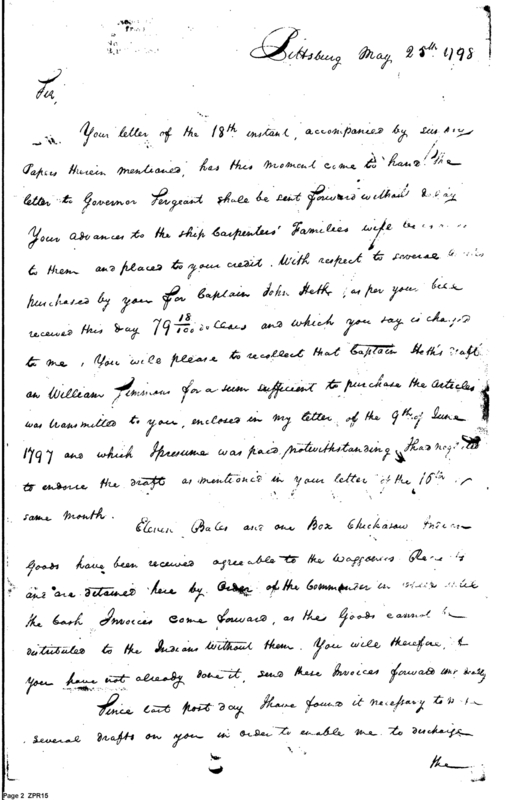 Pittsburg May 25th 1798
Sir,
Your letter of the 18th instant, accompanied by sundry
Papers therein mentioned, has this moment come to hand. The
letter to Governor Sergeant shall be sent forward without delay
Your advances to the ship Carpenters' Families will be
to them and placed to your credit. With respect to several
purchased by you for Captain John Heth, as per your bill
received this day 79 18/100 dollars and which you say is charged
to me, You will please to recollect that Captain Heth's draft
on William Simmons for a sum sufficient to purchase the Articles
was transmitted to you, enclosed in my letter of the 9th of June
1797 and which I presume was paid, notwithstanding I had neglected
to endorse the draft as mentioned in your letter of the 15th
same month.
Eleven Bales and one Box Chickasaw Indian
Goods have been received agreeable to the Waggoners Receipts
and are detained here by Order of the Commander in until
the Cash Invoices come forward, as the Goods cannot be
distributed to the Indians without them. You will therefore, if
you have not already done it, send these Invoices forward immediately
Since last post day I have found it necessary to
several drafts on you in order to enable me to discharge
the
Page 2 ZPR15